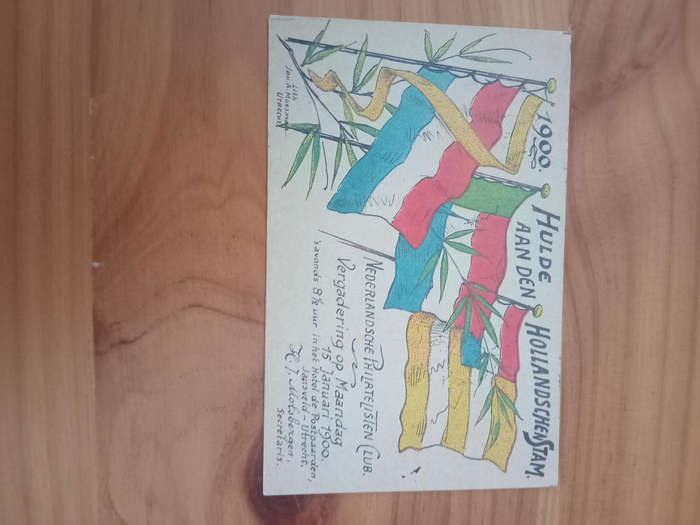 1900. HULDE
AAN DEN HOLLANDSCHEN STAM.
NEDERLANDSCHE PHILATELISTEN CLUB.
Vergadering op Maandag
15 Januari 1900.
's avonds 8½ uur in het Hotel de Postpaarden,
Jansveld - Utrecht.
Secretaris.
Lith
Joh. A. Moesman
UTRECHT